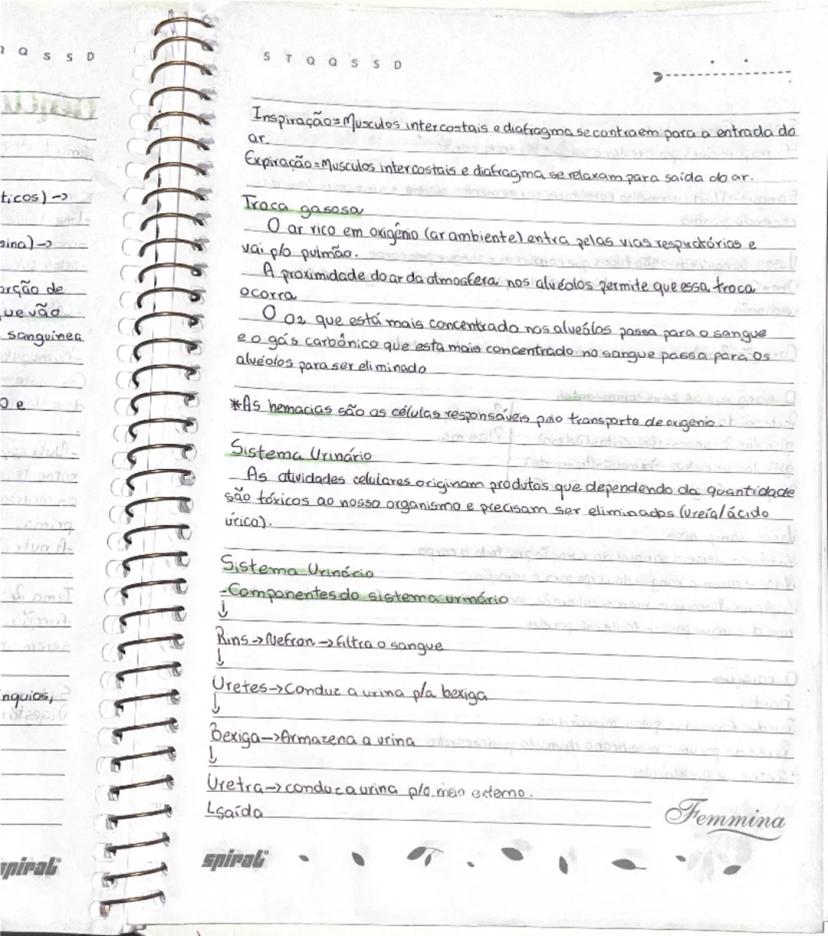 Q S S D
ticos) ->
sina) ->
orção de
que vão
sanguínea
o e
nquios,
spiral
S T Q Q S S D
Inspiração = Musculos intercostais e diafragma se contraem para a entrada do
ar.
Expiração = Musculos intercostais e diafragma se relaxam para saída do ar.
Troca gasosa
O ar rico em oxigênio (ar ambiente) entra pelas vias respiratórias e
vai p/o pulmão.
A proximidade do ar da atmosfera nos alvéolos permite que essa troca
ocorra
O O2 que está mais concentrado nos alveólos passa para o sangue
e o gás carbônico que esta mais concentrado no sangue passa para os
alvéolos para ser eliminado
*As hemacias são as células responsáveis p/o transporte de oxgenio
Sistema Urinário
As atividades celulares originam produtos que dependendo da quantidade
são tóxicos ao nosso organismo e precisam ser eliminados (ureia/ácido
úrico).
Sistema Urinário
-Componentes do sistema urinário
↓
Rins -> Nefron -> filtra o sangue
↓
Uretes -> Conduz a urina p/a bexiga
↓
Bexiga -> Armazena a urina
↓
Uretra -> conduz a urina p/o meio externo.
↳ saída
Femmina
spiral